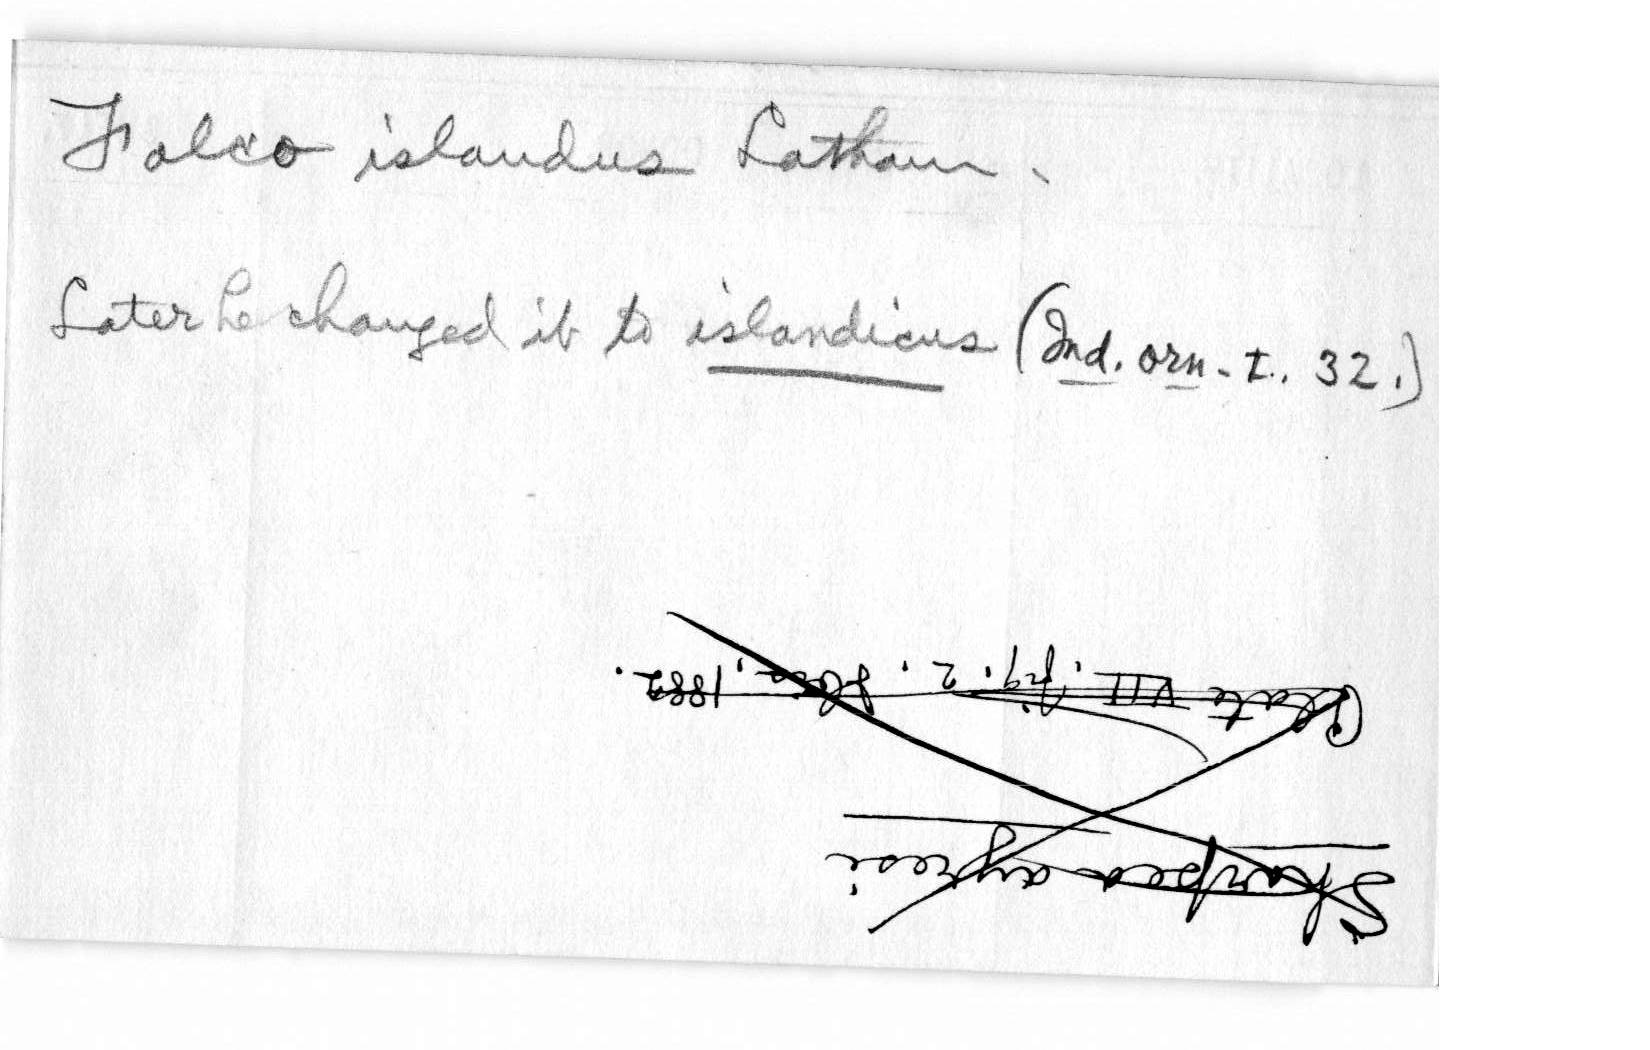 Falco islandus Latham.
Later he changed it to islandicus (Ind. orn. I. 32.)
Sharpea ayresi
Plate VII, fig. 2. 1882.